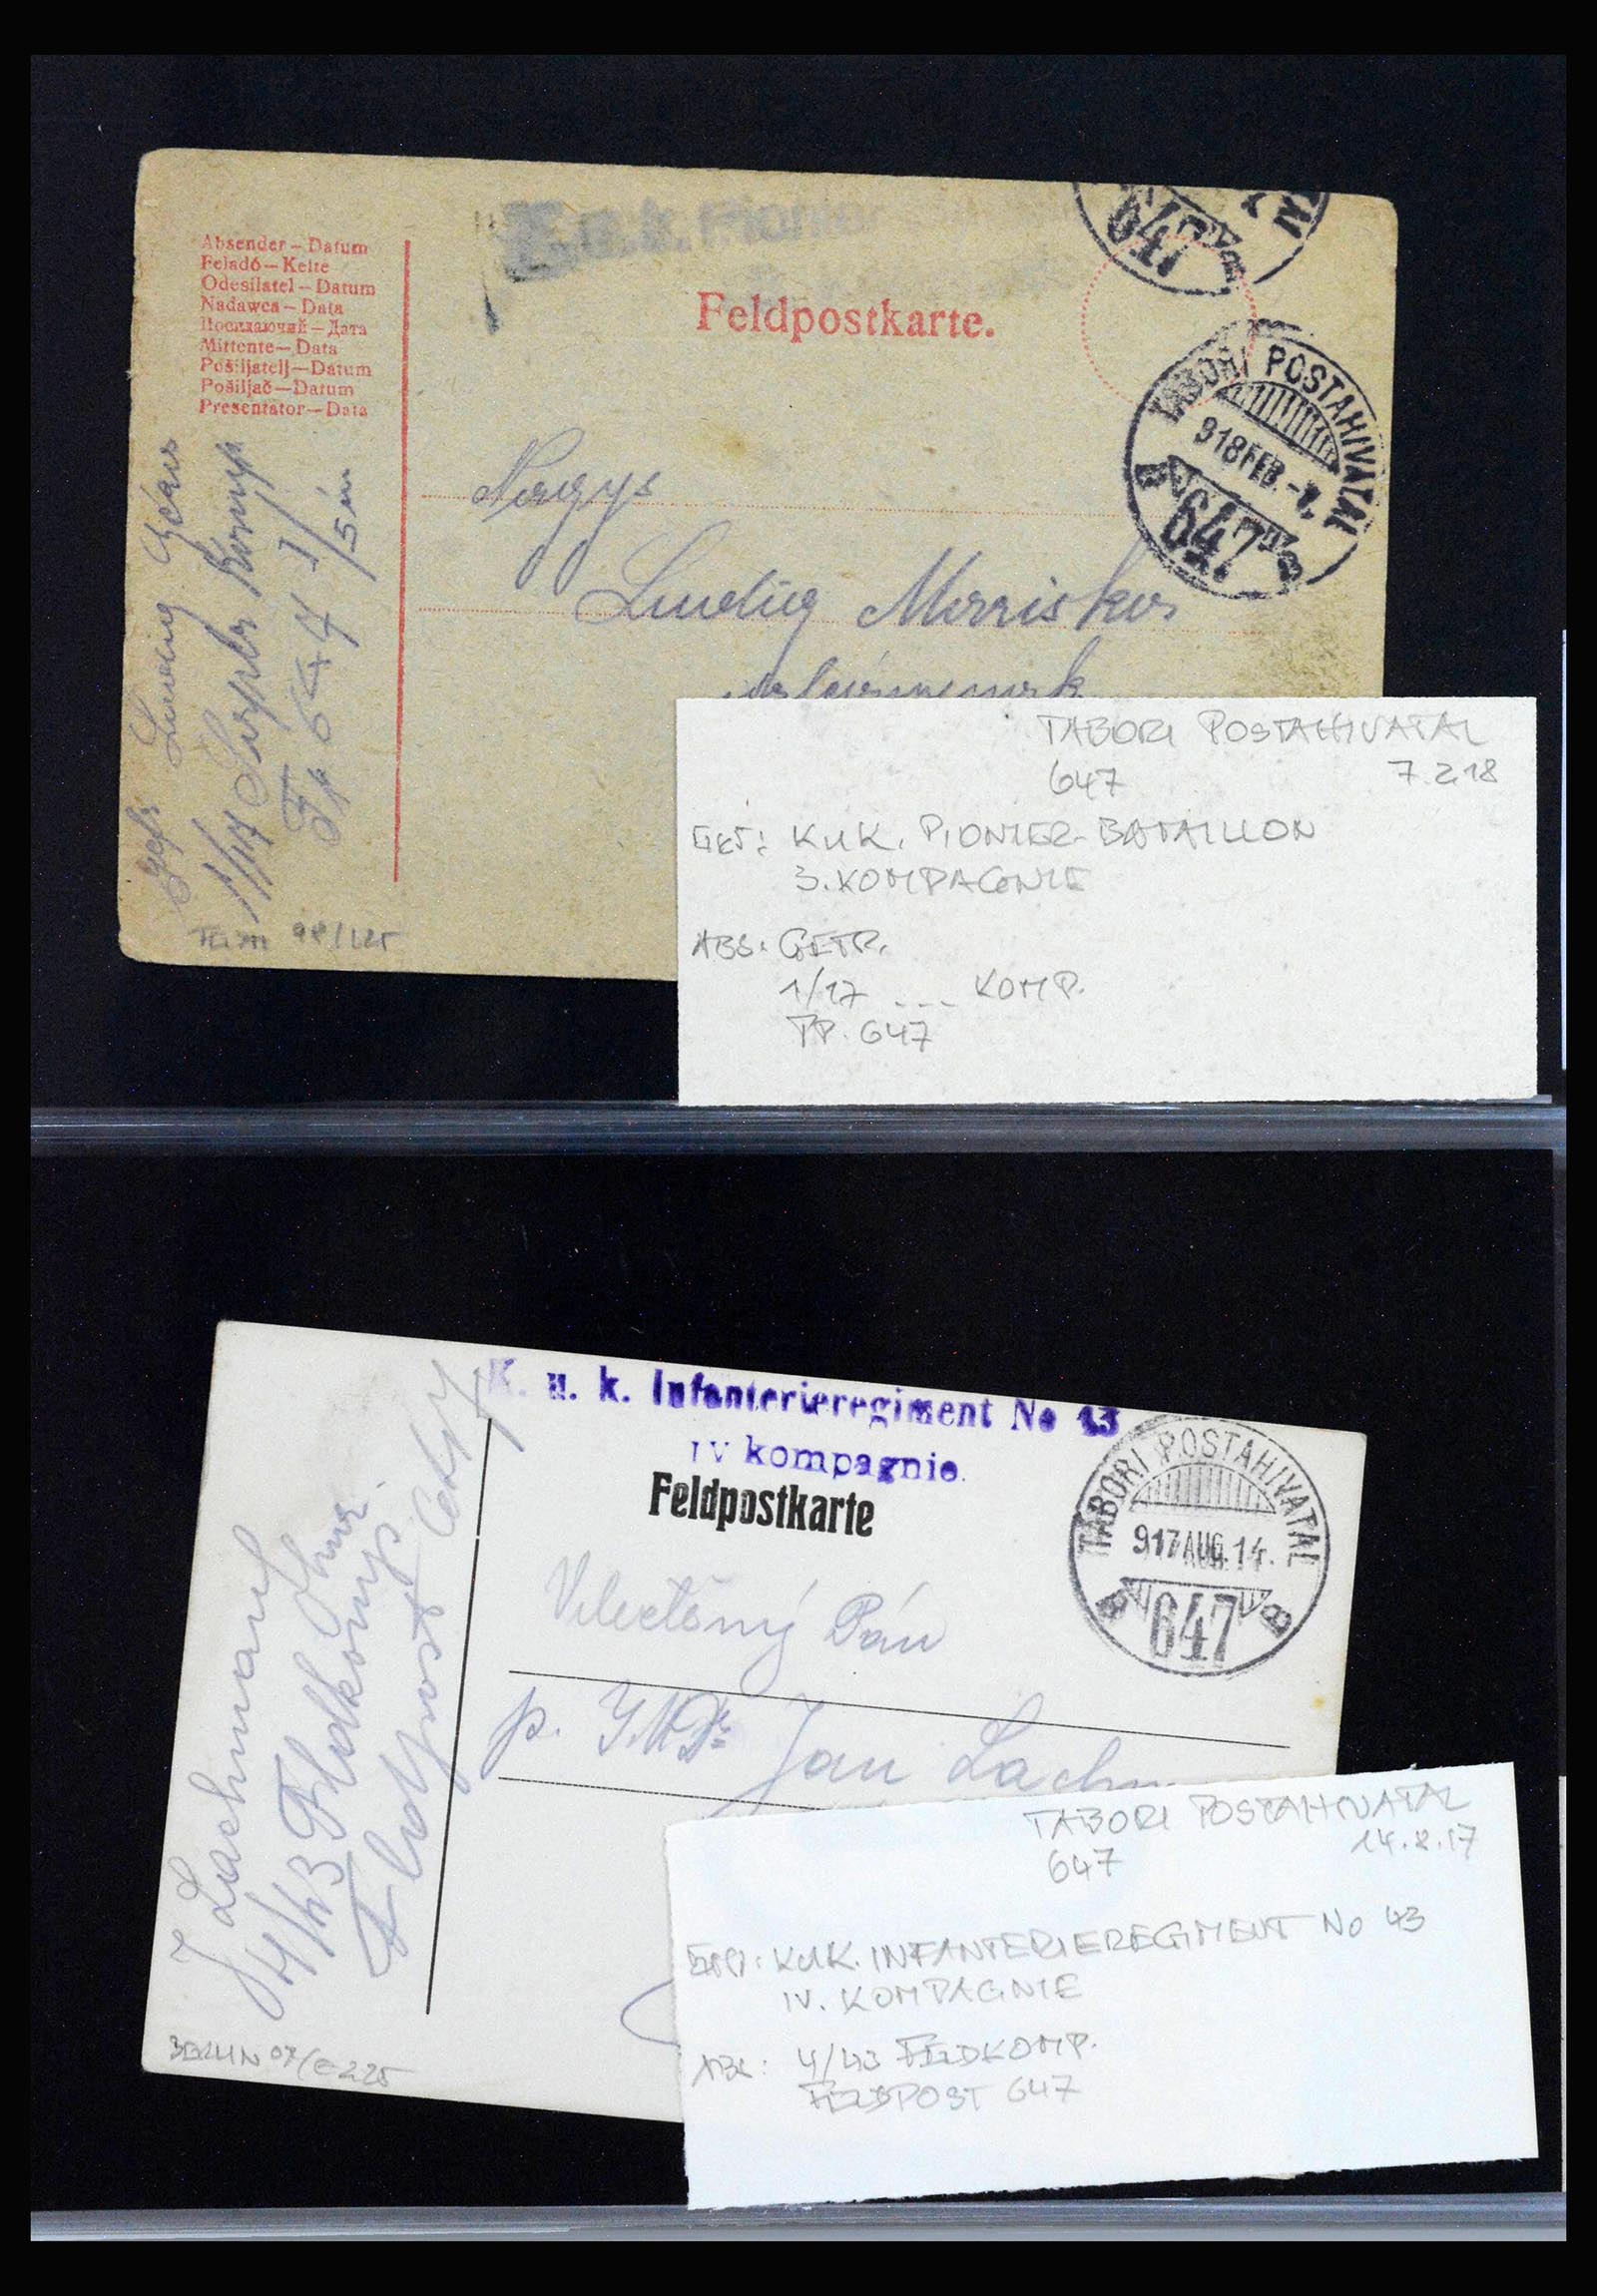 K. u. k. Pionier
Absender – Datum
Feladó – Kelte
Odesílatel – Datum
Nadawca – Data
Посилаючий – Дата
Mittente – Data
Pošiljatelj – Datum
Pošiljač – Datum
Presentator – Data
Feldpostkarte.
647
TÁBORI POSTAHIVATAL
918 FEB. -7.
647
Nagys
Ludwig
1/17 Komp
Fp 647
TABORI POSTAHIVATAL
647 7.2.18
KUK. PIONIER-BATAILLON
3. KOMPAGNIE
ABS: GEFR.
1/17 _ _ _ KOMP.
FP. 647
K. u. k. Infanterieregiment No 43
IV kompagnie.
Feldpostkarte
TÁBORI POSTAHIVATAL
917 AUG. 14.
B 647 B
Velectěný Pán
p. Jan Lachm
J Lachmann
4/43 Feldkomp.
Feldpost 647
BERLIN 07/
TABORI POSTAHIVATAL
647 14.8.17
KUK. INFANTERIEREGIMENT No 43
IV. KOMPAGNIE
ABS: 4/43 FELDKOMP.
FELDPOST 647